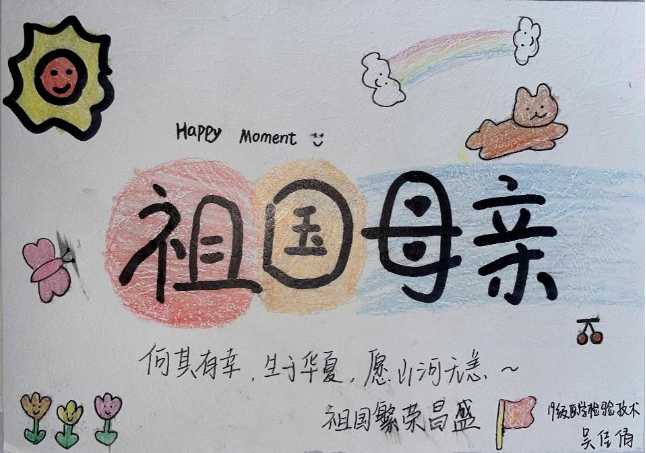 Happy Moment
祖国母亲
何其有幸，生于华夏，愿山河无恙~
祖国繁荣昌盛
级医学检验技术
吴佳倩